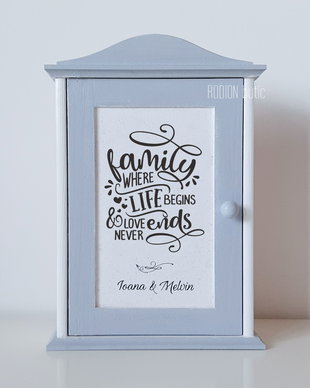 RODION butic
family
WHERE
LIFE BEGINS
& LOVE ends
NEVER
Ioana & Melvin